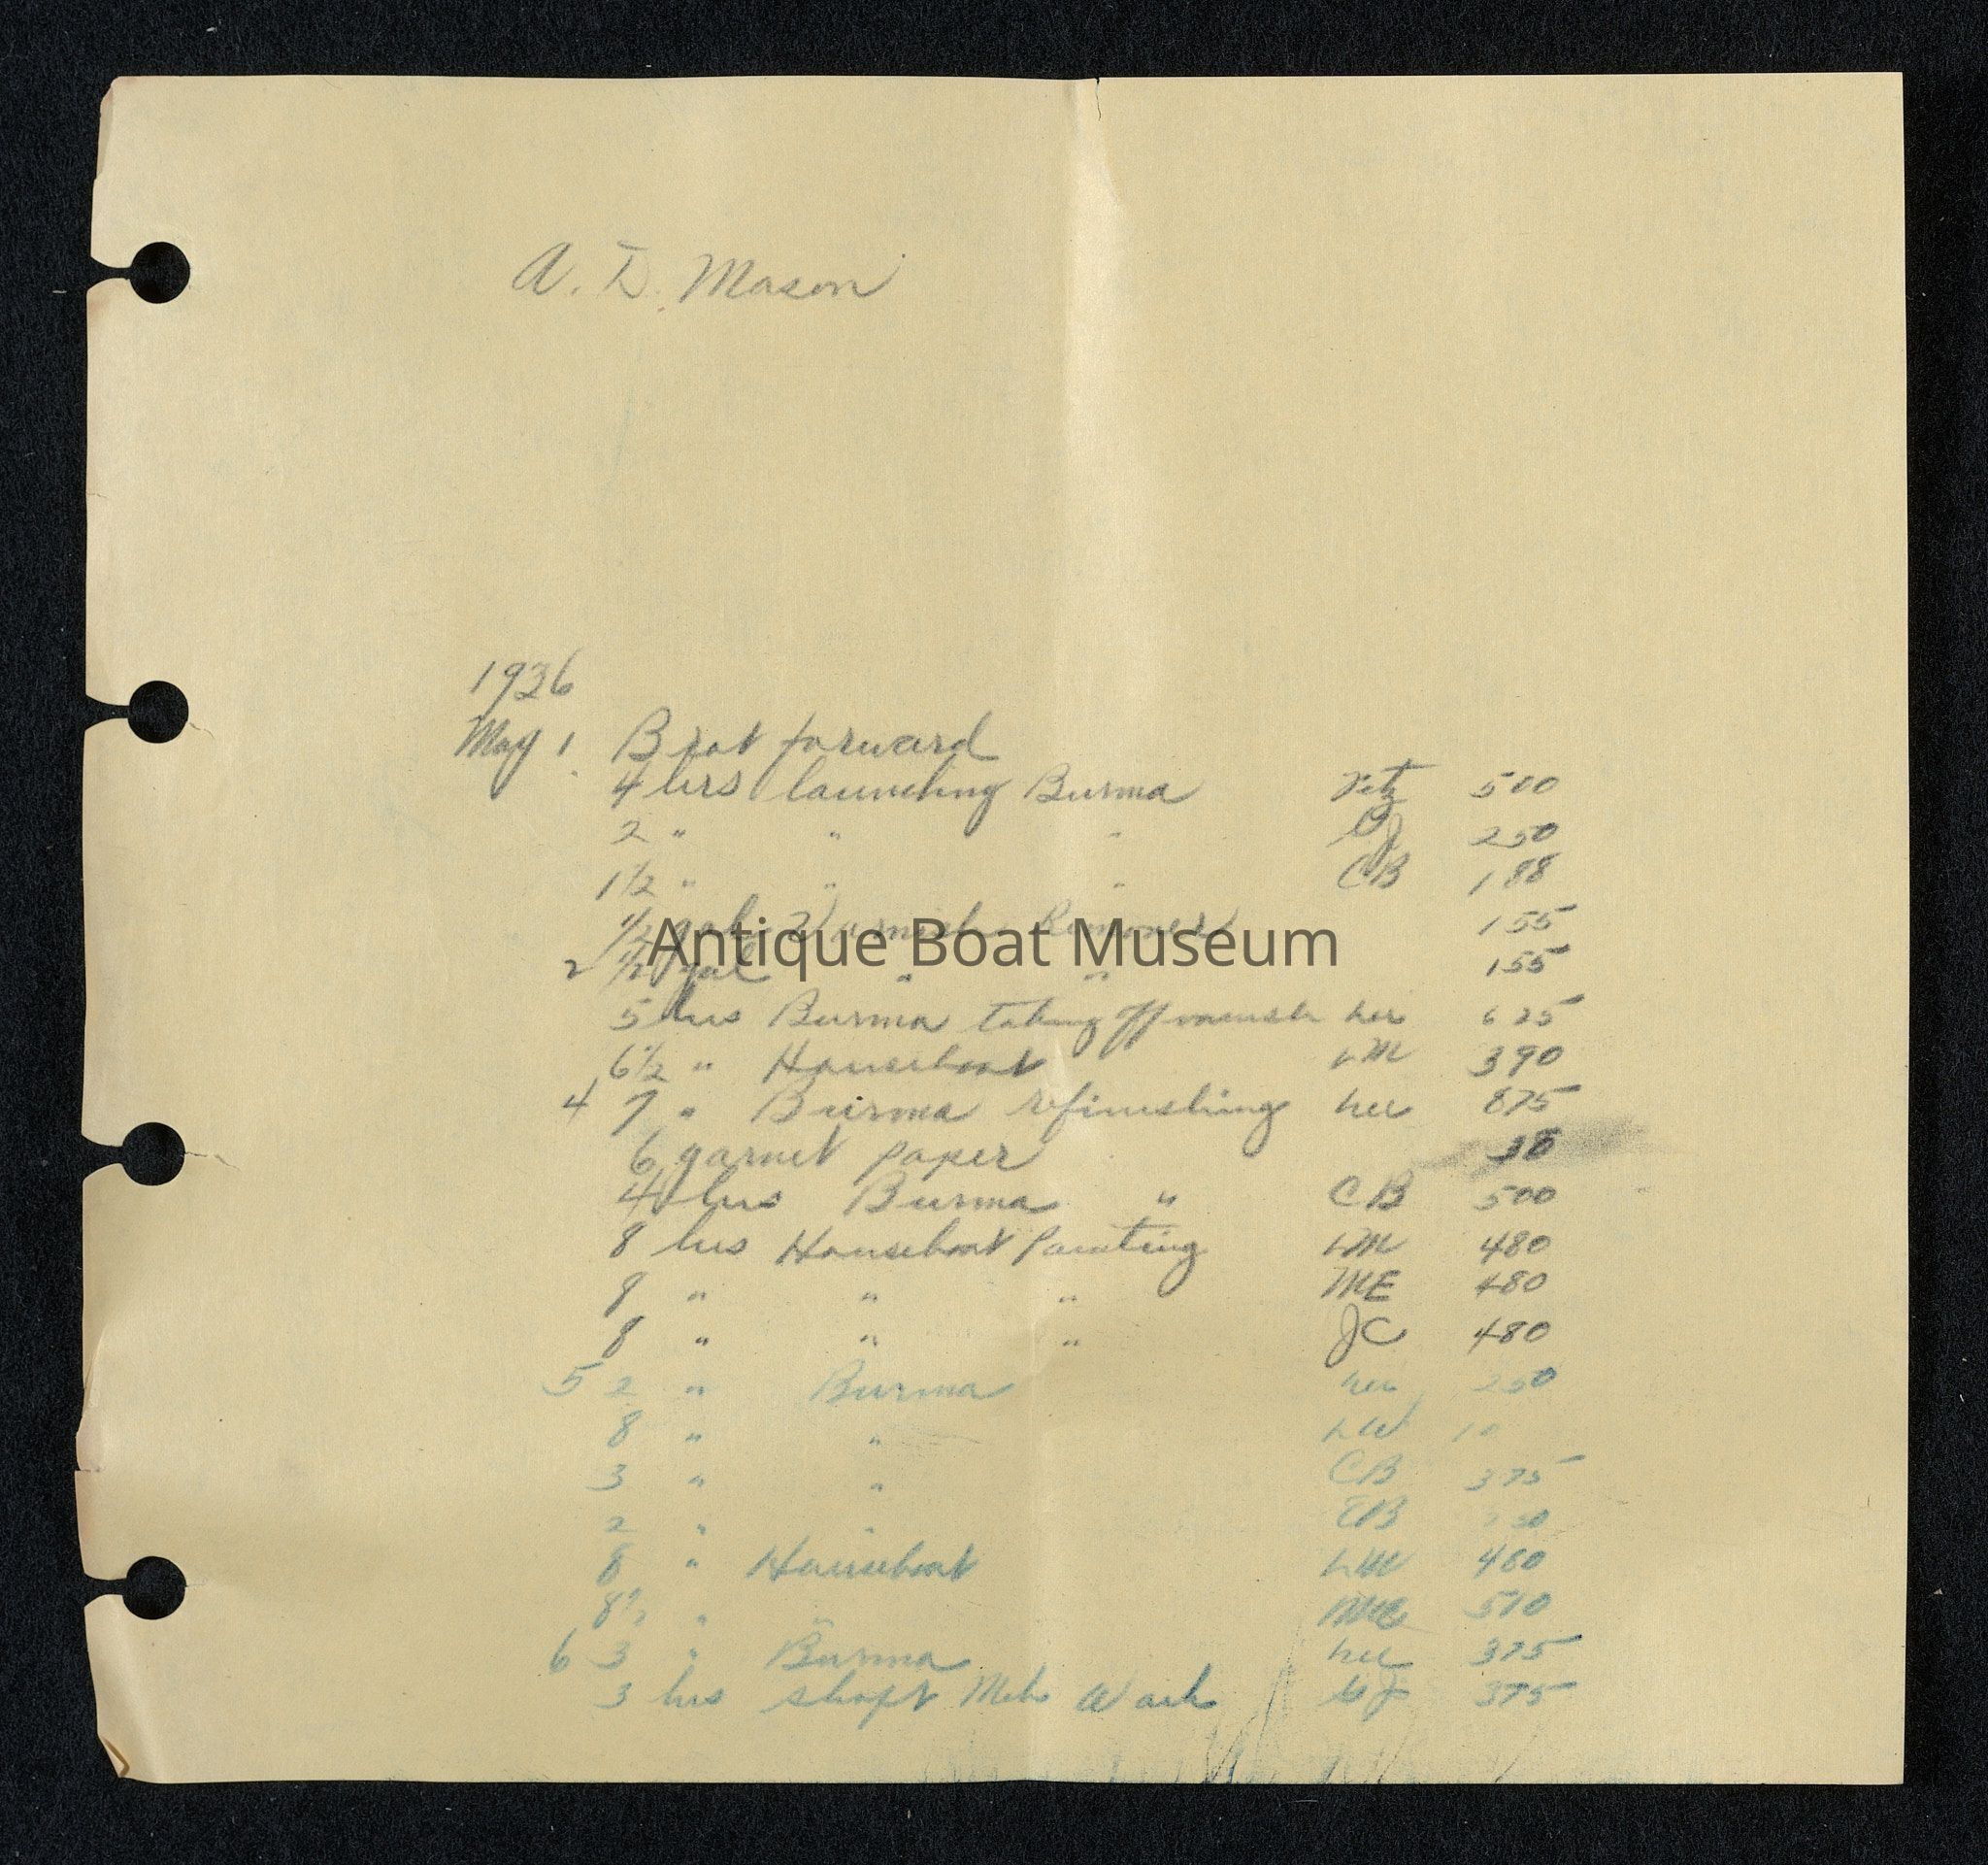 A. D. Mason
1936
May 1 Brot forward
4 hrs launching Burma Fitz 500
2 " " " GJ 250
1 1/2 " " " CB 188
1/2 gal Varnish Remover 155
2 1/2 gal " " 155
5 hrs Burma taking off varnish 625
6 1/2 " Houseboat LM 390
4 7 " Burma refinishing 875
6 garnet paper 38
4 hrs Burma " CB 500
8 hrs Houseboat Painting LM 480
8 " " " ME 480
8 " " " JC 480
5 2 " Burma 250
8 " " LW 10
3 " " CB 375
2 " " EB 250
8 " Houseboat LM 480
8 1/2 " " ME 510
6 3 " Burma 375
3 hrs shaft Mch Work GJ 375
Antique Boat Museum